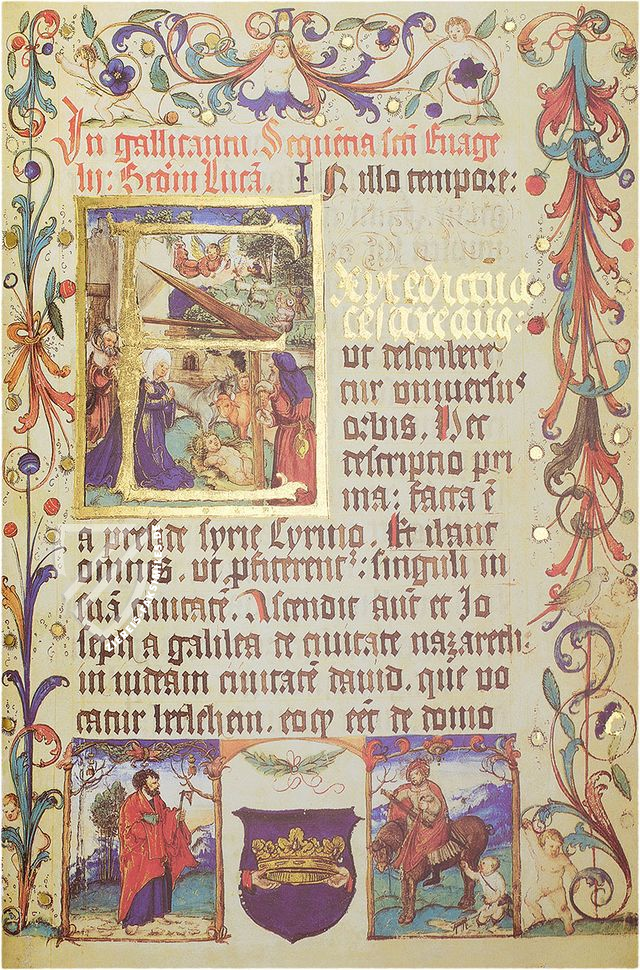 In gallicantu. Sequẽtia scti Euãge
lij: Scdm Lucã. IN illo tempore:
Exijt edictũ a
cesare aug:
ut describere
tur vniversus
orbis. Hec
descriptio pri
ma: facta ẽ
a preside syrie Cyrino. Et ibant
omnes, ut pfiterent: singuli in
suã civitatẽ. Ascendit aũt et Jo
seph a galilea de civitate nazareth:
in iudeam civitatẽ david. que vo
catur bethlehem. eo q eẽt de domo